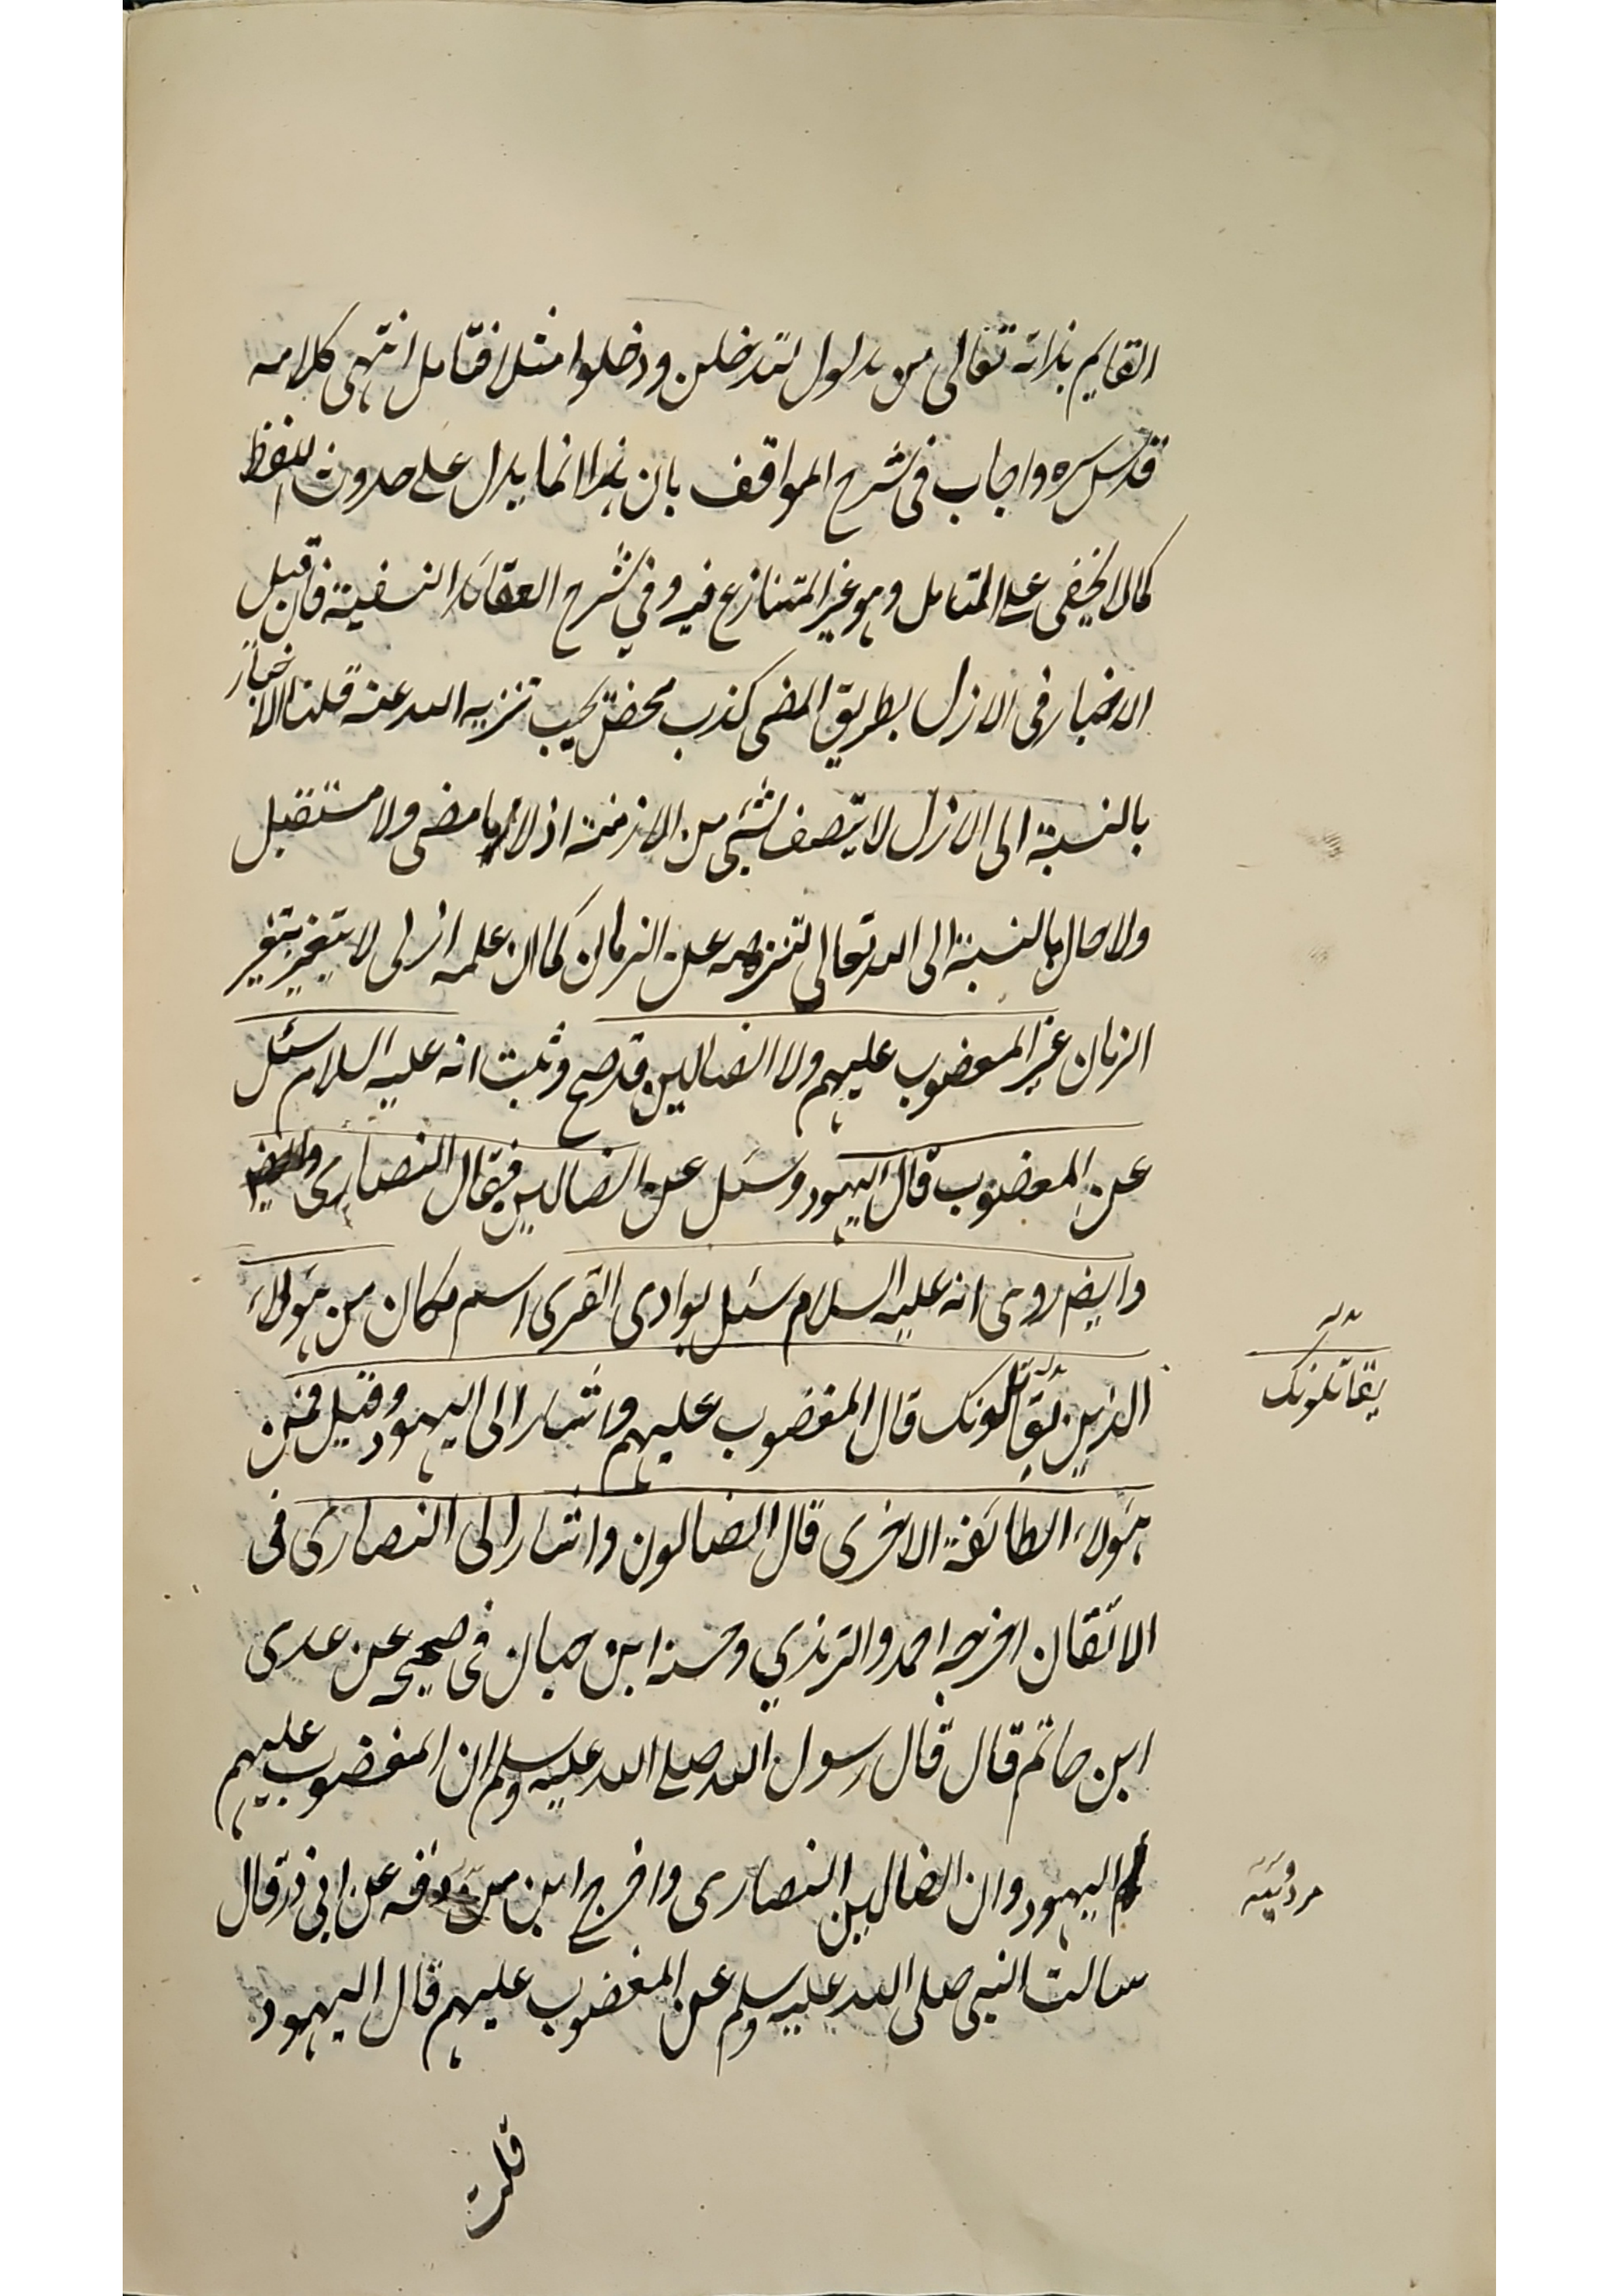 القايم بذاته تعالى من مدلول لتدخلن ودخلوا مثلا فتامل انتهى كلامه
قدس سره واجاب فى شرح المواقف بان هذا انما يدل على حدوث اللفظ
كما لا يخفى على المتامل وهو غير المتنازع فيه وفي شرح العقائد النسفية فان قيل
الاخبار فى الازل بطريق المضى كذب محض يجب تنزيه الله عنه قلنا الاخبار
بالنسبة الى الازل لا يتصف بشئ من الازمنة اذ لا ماضى ولا مستقبل
ولا حال بالنسبة الى الله تعالى لتنزهه عن الزمان كما ان علمه ازلى لا يتغير بتغير
الزمان غير المغضوب عليهم ولا الضالين قد صح وثبت انه عليه السلام سئل
عن المغضوب قال اليهود وسئل عن الضالين فقال النصارى
وايضا روى انه عليه السلام سئل بوادى القرى اسم مكان من هؤلاء
الذين يقاتلونك قال المغضوب عليهم واشار الى اليهود وقيل فمن
هؤلاء الطائفة الاخرى قال الضالون واشار الى النصارى فى
الاتقان اخرجه احمد والترمذي وحسنه ابن حبان فى صحيحه عن عدى
ابن حاتم قال قال رسول الله صلى الله عليه وسلم ان المغضوب عليهم
هم اليهود وان الضالين النصارى واخرج ابن عن ابى ذر قال
سالت النبى صلى الله عليه وسلم عن المغضوب عليهم قال اليهود
قلت
يقاتلونك
مردويه